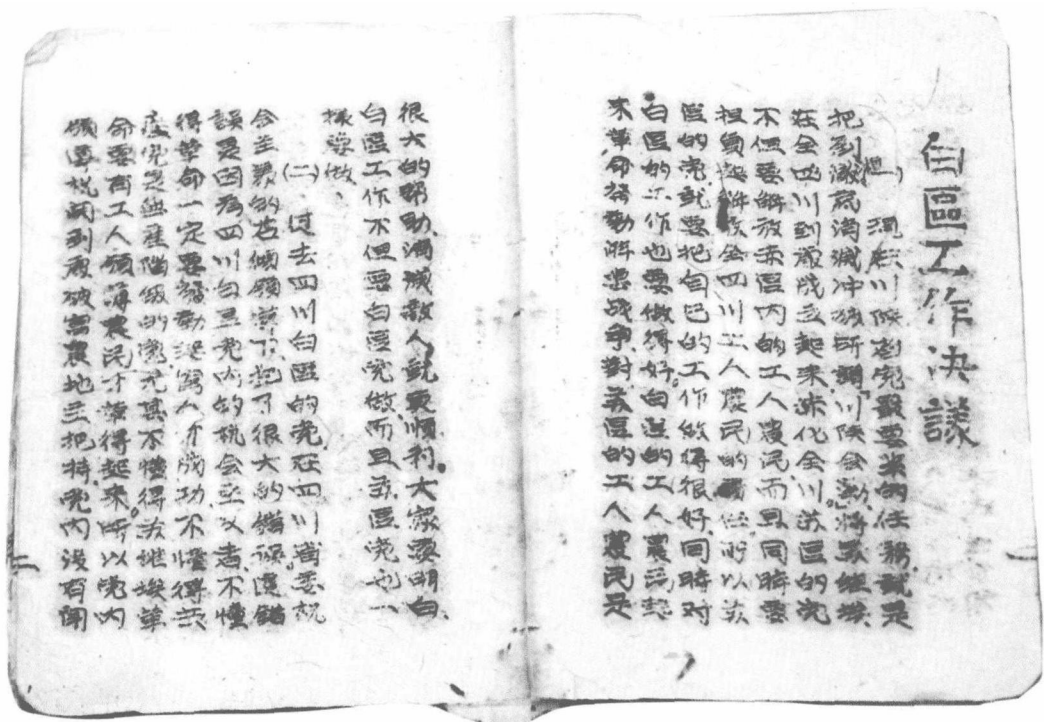 白區工作決議
(一) 現在川陝党最要紧的任務就是
把刘湘消滅冲破所謂川陝会勦将苏维埃
在全四川到處成立起来赤化全川。苏區的党
不但要解放赤區内的工人農民而且同時要
担負起解放全四川工人農民的責任所以苏
區的党就要把自己的工作做得很好。同時对
白區的工作也要做得好。白區的工人農民起
来革命發動游击战争對苏區的工人農民是
很大的帮助消滅敵人就更順利。大家要明白
白區工作不但要白區党做而且苏區党也一
樣要做。
(二) 过去四川白區的党在四川省委机
会主義的右傾領導下犯了很大的錯誤這錯
誤是因為四川白區党内的机会主义者不懂
得革命一定要發動起窮人才成功不懂得共
産党是無産階级的党尤其不懂得苏维埃革
命要有工人領導農民才鬧得起来。所以党内
領導机関到處被富農地主把持党内没有開